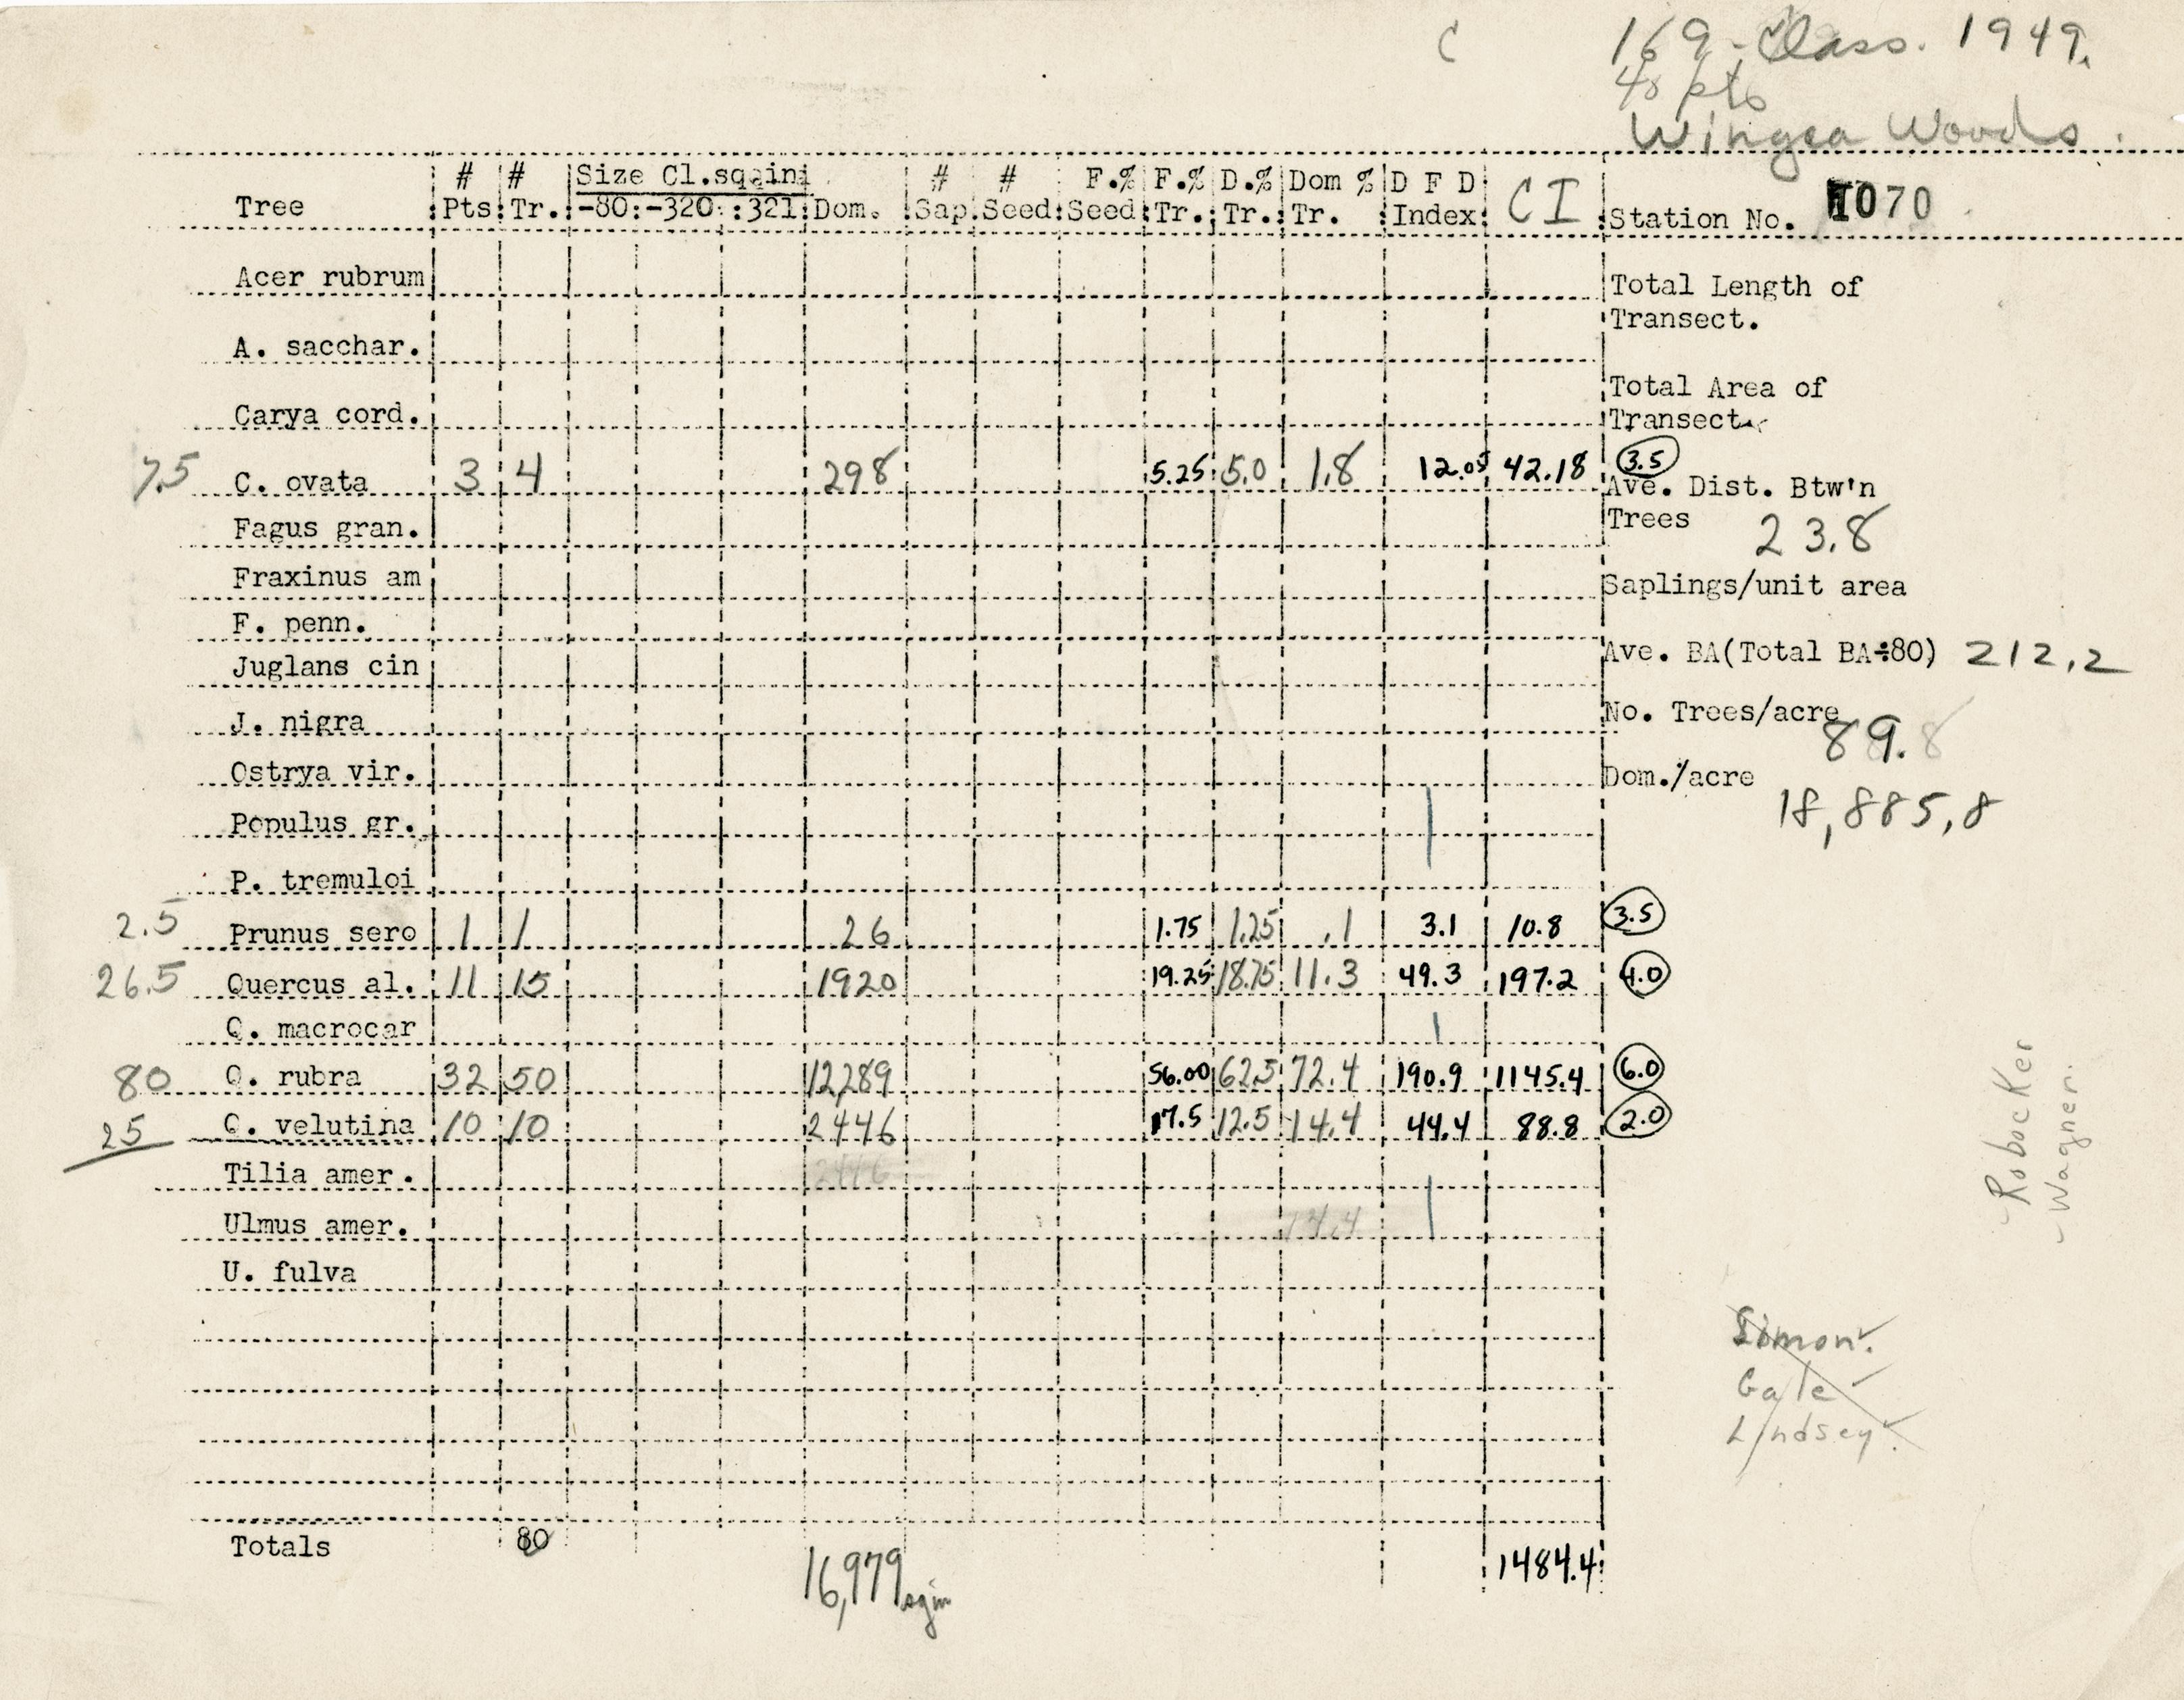 C 169-Class. 1949.
40 pts
Wingra Woods.
# # Size Cl.sqqini # # F.% F.% D.% Dom % D F D
Tree Pts Tr. -80 -320 321 Dom. Sap. Seed Seed Tr. Tr. Tr. Index CI Station No. 1070
Acer rubrum Total Length of
Transect.
A. sacchar.
Total Area of
Carya cord. Transect
7.5 C. ovata 3 4 298 5.25 5.0 1.8 12.05 42.18 3.5
Ave. Dist. Btw'n
Fagus gran. Trees 23.8
Fraxinus am Saplings/unit area
F. penn.
Juglans cin Ave. BA(Total BA÷80) 212.2
J. nigra No. Trees/acre 89.8
Ostrya vir. Dom./acre
Populus gr. 18,885,8
P. tremuloi
2.5 Prunus sero 1 1 26 1.75 1.25 .1 3.1 10.8 3.5
26.5 Quercus al. 11 15 1920 19.25 18.75 11.3 49.3 197.2 4.0
Q. macrocar
80 Q. rubra 32 50 12,289 56.00 62.5 72.4 190.9 1145.4 6.0
25 Q. velutina 10 10 2446 17.5 12.5 14.4 44.4 88.8 2.0
Tilia amer. 2446
Ulmus amer. 14.4
U. fulva
Robocker
Wagner.
Simon.
Gale
Lindsey.
Totals 80 16,979 sqin 1484.4